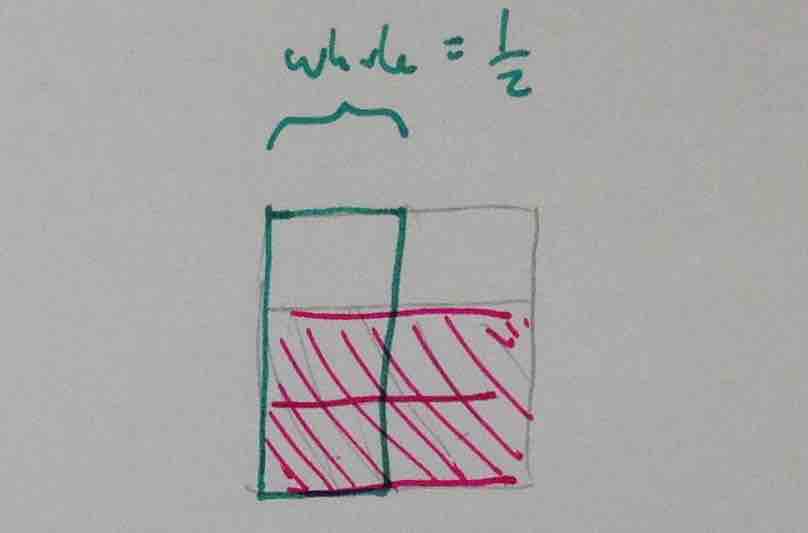 whole = 1/2